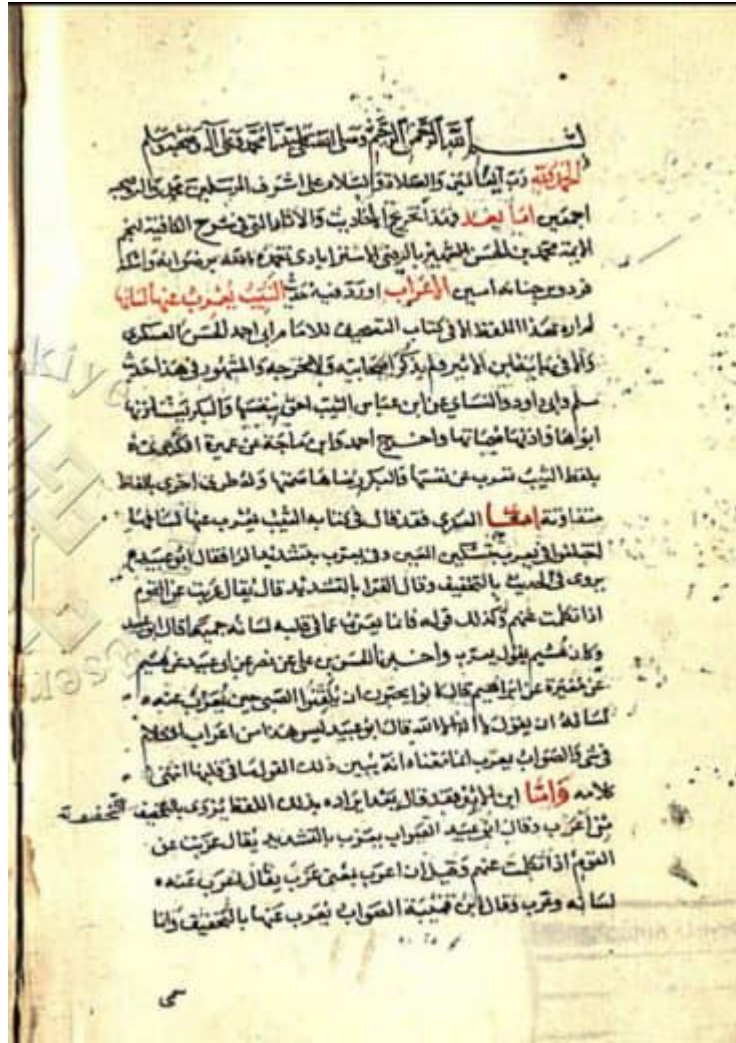 بسم الله الرحمن الرحيم وصلى الله على سيدنا محمد وعلى آله وصحبه وسلم
الحمد لله رب العالمين والصلاة والسلام على اشرف المرسلين محمد وآله وصحبه
اجمعين اما بعد فهذا تخريج الاحاديث والاثار التي في شرح الكافية لنجم
الايمة محمد بن الحسن الشهير بالرضي الاستراباذي تغمده الله برضوانه واسكنه
جنانه امين الاعراب اورد فيه حديث الثيب يعرب عنها لسانها
لم اره بهذا اللفظ الا في كتاب التصحيف للامام ابي احمد الحسن العسكري
والا في نهاية ابن الاثير ولم يذكر صحابيه ولا مخرجه والمشهور في هذا حديث
مسلم وابي داود والنساي عن ابن عباس الثيب احق بنفسها والبكر يستاذنها
ابوها واذنها صماتها واخرج احمد وابن ماجة عن عميرة الكندي
بلفظ الثيب تعرب عن نفسها والبكر رضاها صمتها وله طرق اخرى بالفاظ
متفاوتة اما العسكري فقد قال في كتابه الثيب يعرب عنها لسانها
اختلفوا في يعرب بتسكين العين وفي يعرب بتشديد الرا فقال ابو عبيد
يروى في الحديث بالتخفيف وقال الفرا بالتشديد قال يقال عربت عن القوم
اذا تكلمت عنهم وكذلك قوله فانما يعرب عما في قلبه لسانه جميعا قال ابو عبيد
وكان هشيم يقول يعرب واخبرنا الحسن بن علي عن نصر عن ابي عبيد عن هشيم
عن مغيرة عن ابراهيم قال كانوا يحبون ان يلقنوا الصبي حين يعرب عنه
لسانه ان يقول لا اله الا الله قال ابو عبيد ليس هذا من اعراب الكلام
في شي والصواب يعرب انما معناه انه يبين ذلك القول ما في قلبها انتهى
كلامه واما ابن الاثير فقد قال بعد ايراده بذلك اللفظ يروى بالتخفيف
من اعرب وقال ابو عبيد الصواب يعرب بالتشديد يقال عربت عن
القوم اذا تكلمت عنهم وقيل ان اعرب بمعنى عرب يقال اعرب عنه
لسانه وعرب وقال ابن قتيبة الصواب يعرب عنها بالتخفيف وانما